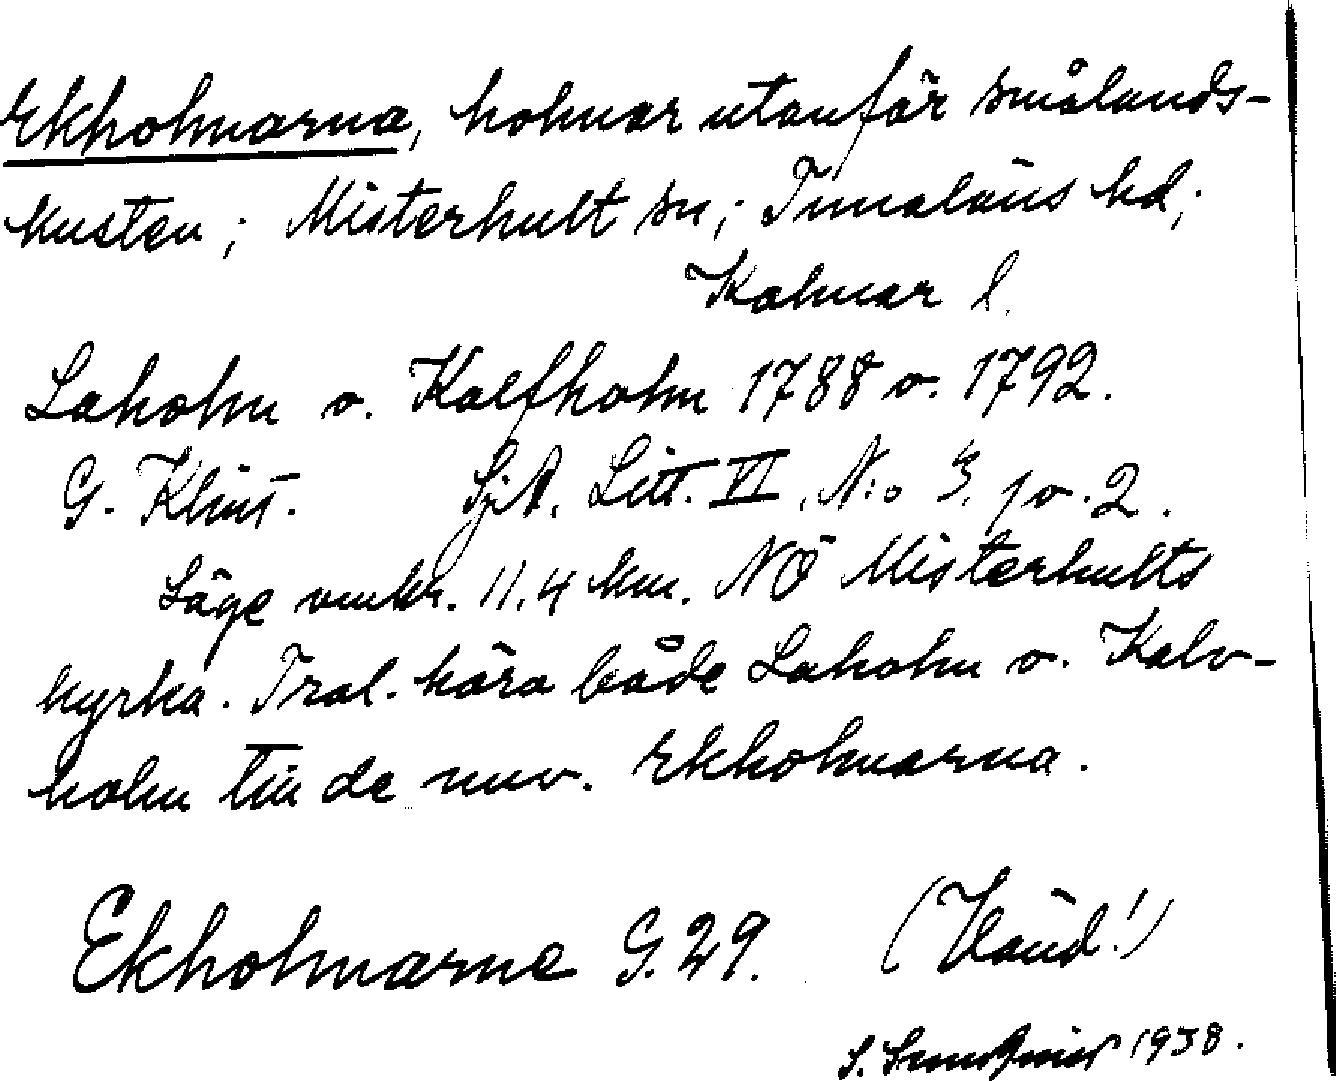 Ekholmarna, holmar utanför smålands-
kusten; Misterhult sn; Tunaläns hd;
Kalmar l.
Laholm o. Kalfholm 1788 o. 1792.
G. Klint. SjA. Litt. VI, N:o 3, 1 o. 2.
Läge omkr. 11,4 km. NÖ Misterhults
kyrka. Trol. höra både Laholm o. Kalv-
holm till de nuv. Ekholmarna.
Ekholmarne G. 29. (Vänd!)
S. 1938.